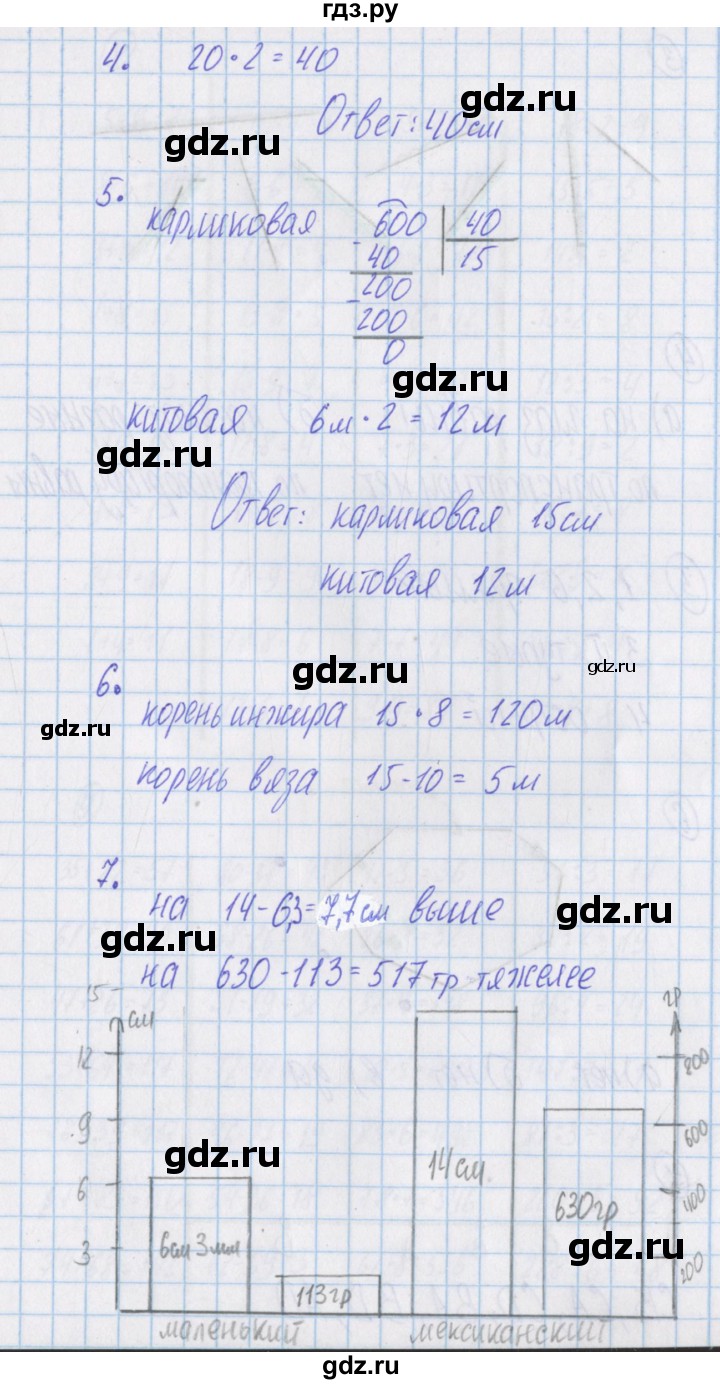 гдз.ру
4. 20 · 2 = 40
gdz.ru
Ответ: 40 см
gdz.ru
5.
карликовая 600 40
- 40 15
200
- 200
0
gdz.ru
китовая 6м · 2 = 12 м
gdz.ru
Ответ: карликовая 15см
китовая 12м
6.
gdz.ru
gdz.ru
корень инжира 15 · 8 = 120м
gdz.ru
корень вяза 15 - 10 = 5 м
7.
на 14 - 6,3 = 7,7 см выше
gdz.ru
gdz.ru
на 630 - 113 = 517 гр тяжелее
15 см гр
12 800
9 600
gdz.ru
14 см
6 400
630 гр
6см 3мм
gdz.ru
3 200
113 гр
маленький мексиканский
gdz.ru